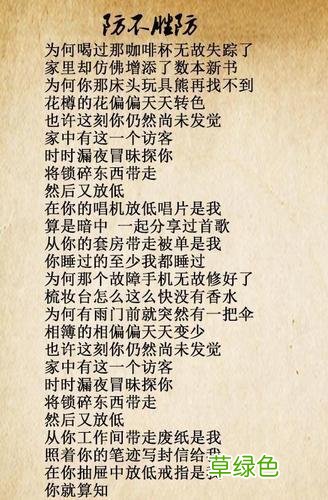 防不胜防
为何喝过那咖啡杯无故失踪了
家里却仿佛增添了数本新书
为何你那床头玩具熊再找不到
花樽的花偏偏天天转色
也许这刻你仍然尚未发觉
家中有这一个访客
时时漏夜冒昧探你
将锁碎东西带走
然后又放低
在你的唱机放低唱片是我
算是暗中 一起分享过首歌
从你的套房带走被单是我
你睡过的至少我都睡过
为何那个故障手机无故修好了
梳妆台怎么这么快没有香水
为何有雨门前就突然有一把伞
相簿的相偏偏天天变少
也许这刻你仍然尚未发觉
家中有这一个访客
时时漏夜冒昧探你
将锁碎东西带走
然后又放低
从你工作间带走废纸是我
照着你的笔迹写封信给我
在你抽屉中放低戒指是我
你就算知
草绿色